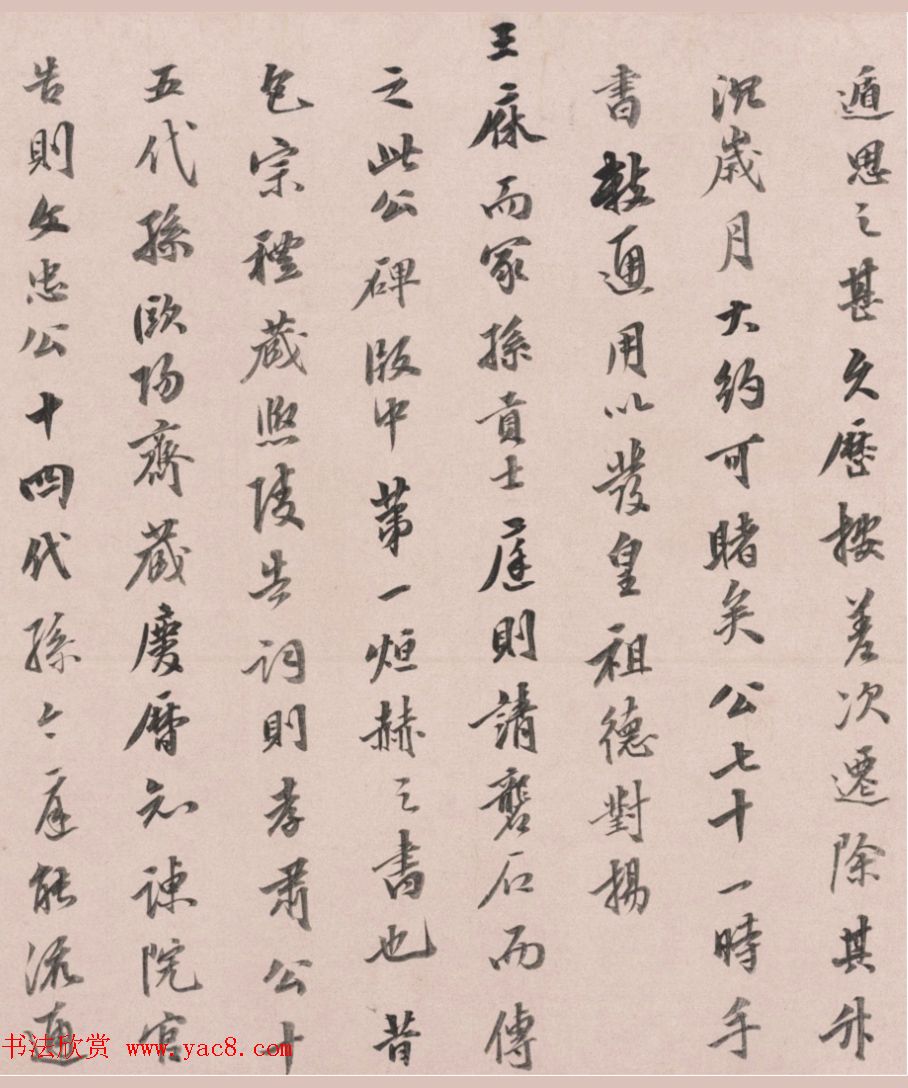 遁思之甚久歷按差次遷除其升
沉歲月大約可睹矣公七十一時手
書敕通用以發皇祖德對揚
王庥而冢孫貢士庭則請礱石而傳
之此公碑版中第一烜赫之書也昔
包宗禮藏熙陵告詞則孝肅公十
五代孫歐陽齊藏慶曆知諫院官
告則文忠公十四代孫今庭能流通
书法欣赏 www.yac8.com